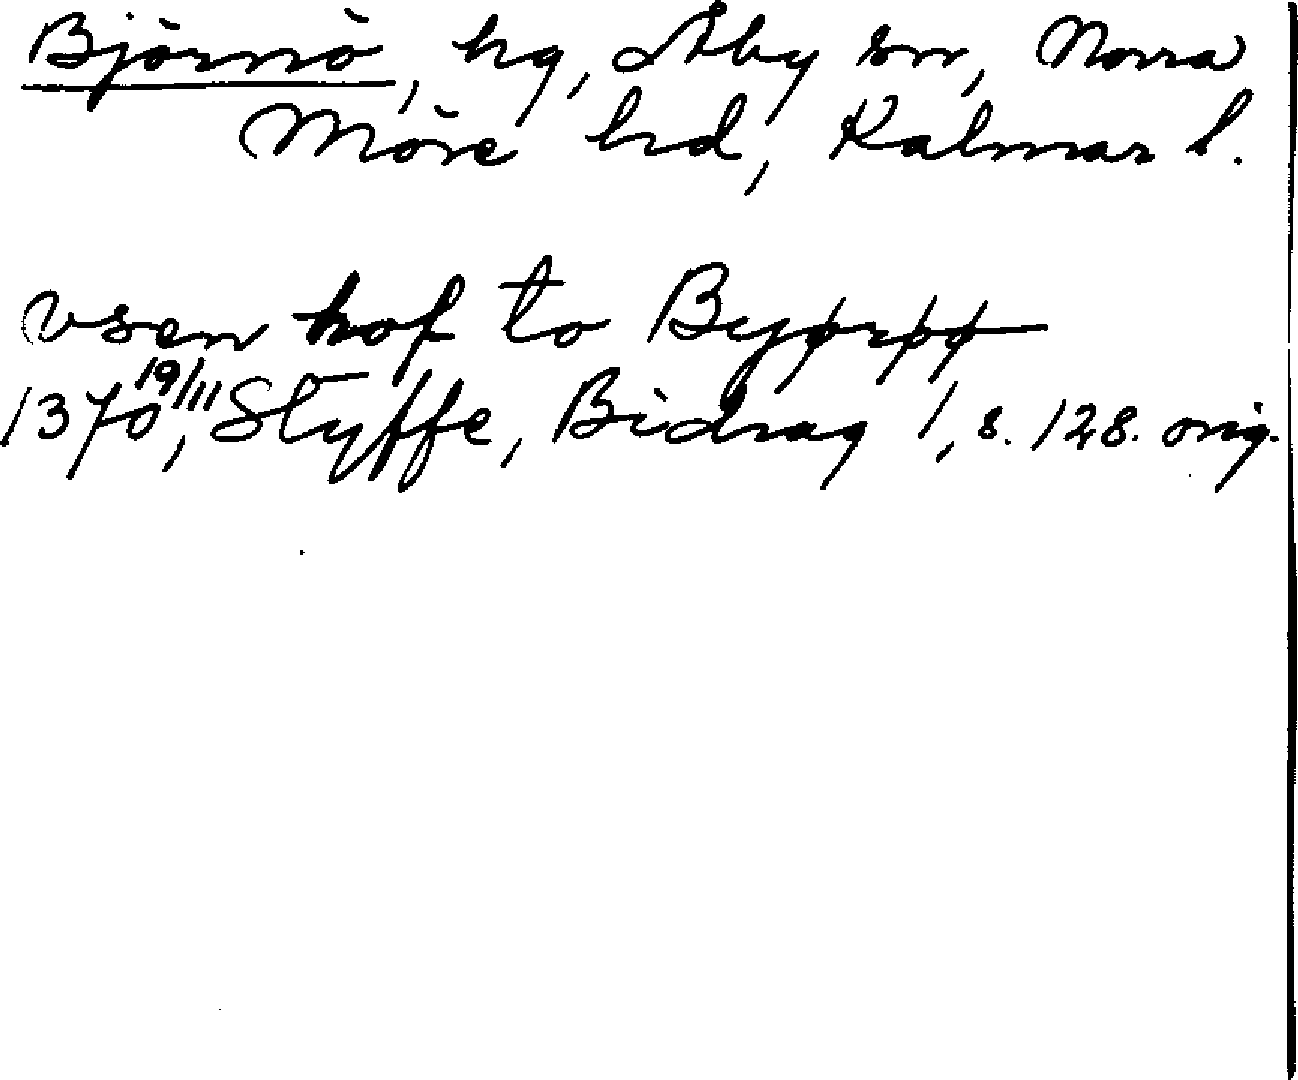 Björnö, hg, Åby sn, Norra
Möre hd, Kalmar l.
vsen hof to Byørpø
1370 19/11, Styffe, Bidrag 1, s. 128. orig.